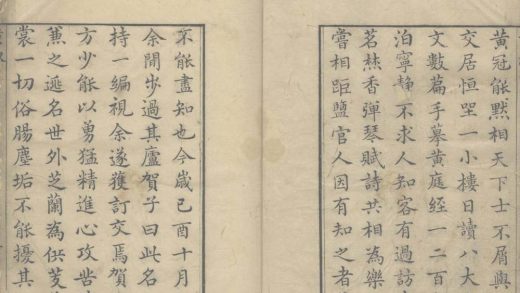 黃冠能黙相天下士不屑與
交居恒坐一小樓日讀八大
文數篇手摹黃庭経一二百
泊寧静不求人知客有過訪
茗焚香彈琴賦詩共相為樂
嘗相距鹽官人因有知之者
不能盡知也今嵗己酉十月
余閒步過其廬賀子曰此名
持一編視余遂獲訂交焉賀
方少能以勇猛精進心攻苦
薫之遯名世外芝蘭為供芰
裳一切俗腸塵垢不能擾其